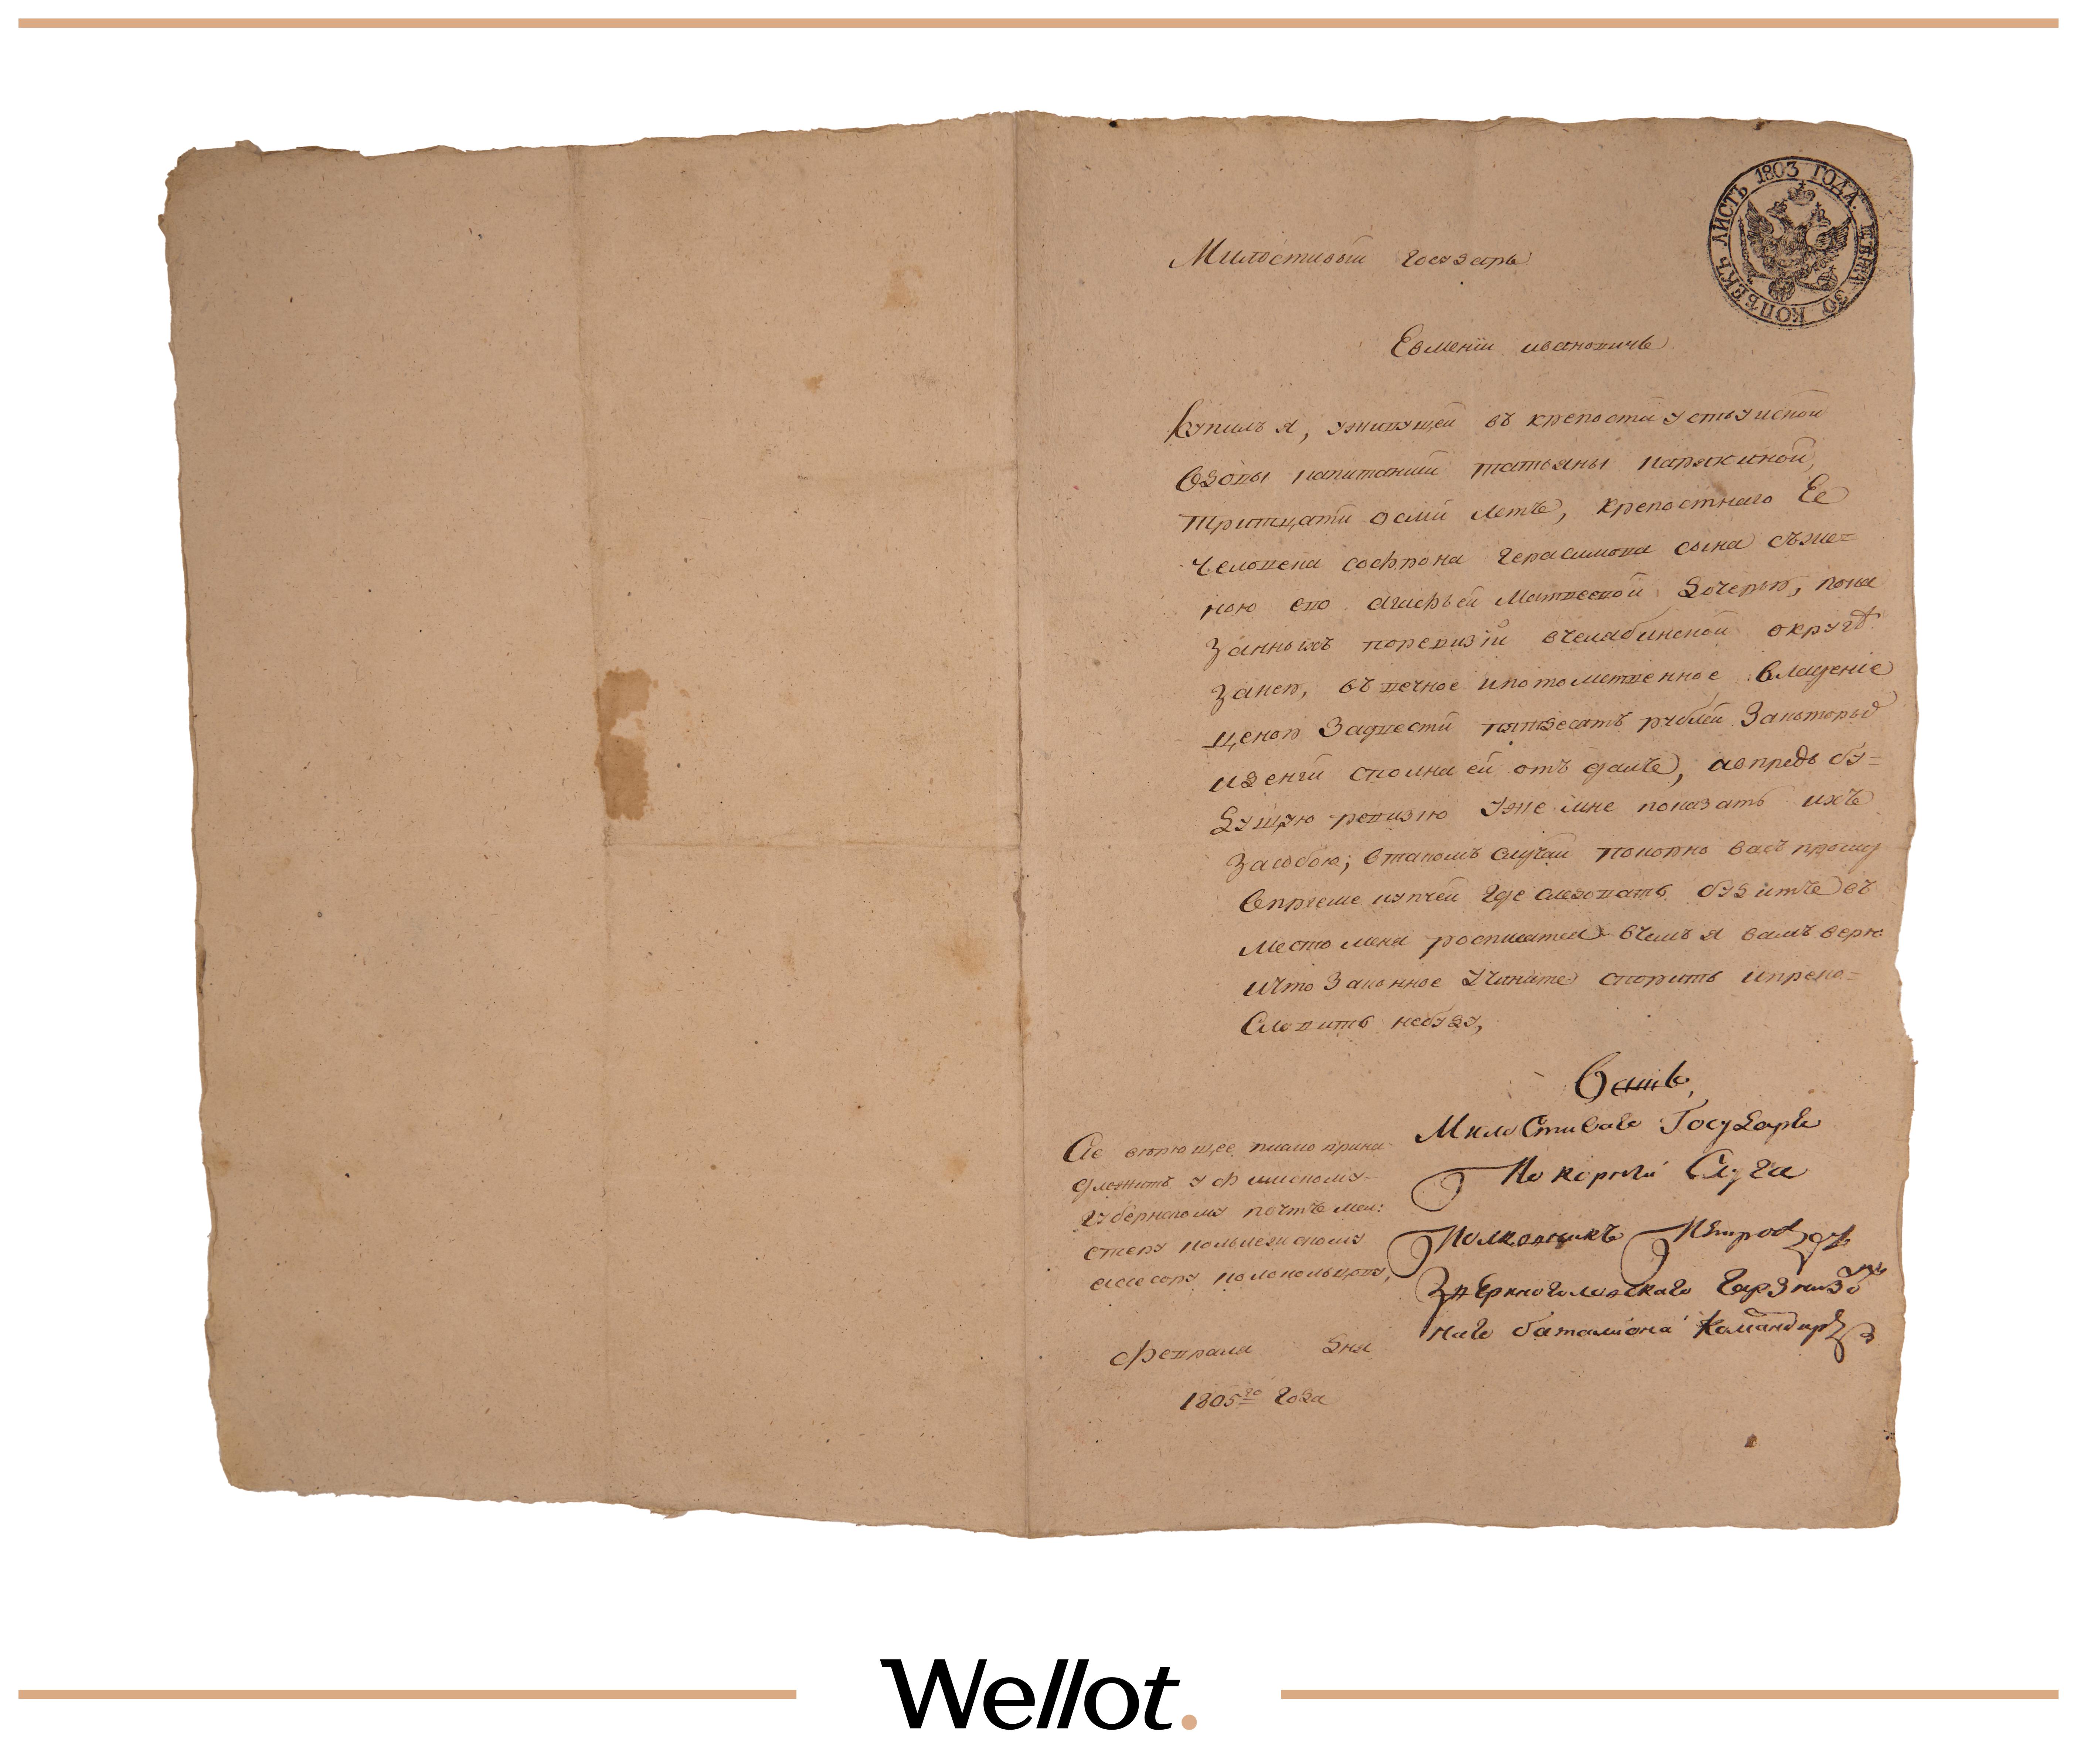 ЛИСТЪ 1803 ГОДА. ЦѢНА 30 КОПѢЕКЪ
Милостивый государь
Евмений ивановичь
Купилъ я, уживущей въ крепости устъуйской
вдовы капитанши татьяны карякиной,
тритцати осми летъ, крепостнаго Ее
человека софрона герасимова сына съже=
ною ево агафьей Матвеевой дочерью, пока
занныхъ поревизiи вчелябинской округѣ
занею, въ вечное ипотомственное владение
ценою задвести пятдесятъ рублей закоторыя
иденги сполна ей отъ далъ, авпредь бу=
дущую ревизию уже мне показать ихъ
засобою; втакомъ случаи покорно васъ прошу
вприеме купчей где следовать будитъ въ
место меня росписатся вчемъ я вамъ верю
ичто законное учините спорить ипреко=
словить небуду,
Вашъ,
Милостиваго Государь
Покорный Слуга
Полковникъ Петров
Звериноголовскаго Гарнизо
наго баталиона командиръ
Сие верющее писмо прина
длежитъ уфимскому
губернскому почтъмей:
стеру колежскому
асесору колокольцову,
февраля дня
1805го года
Wellot.